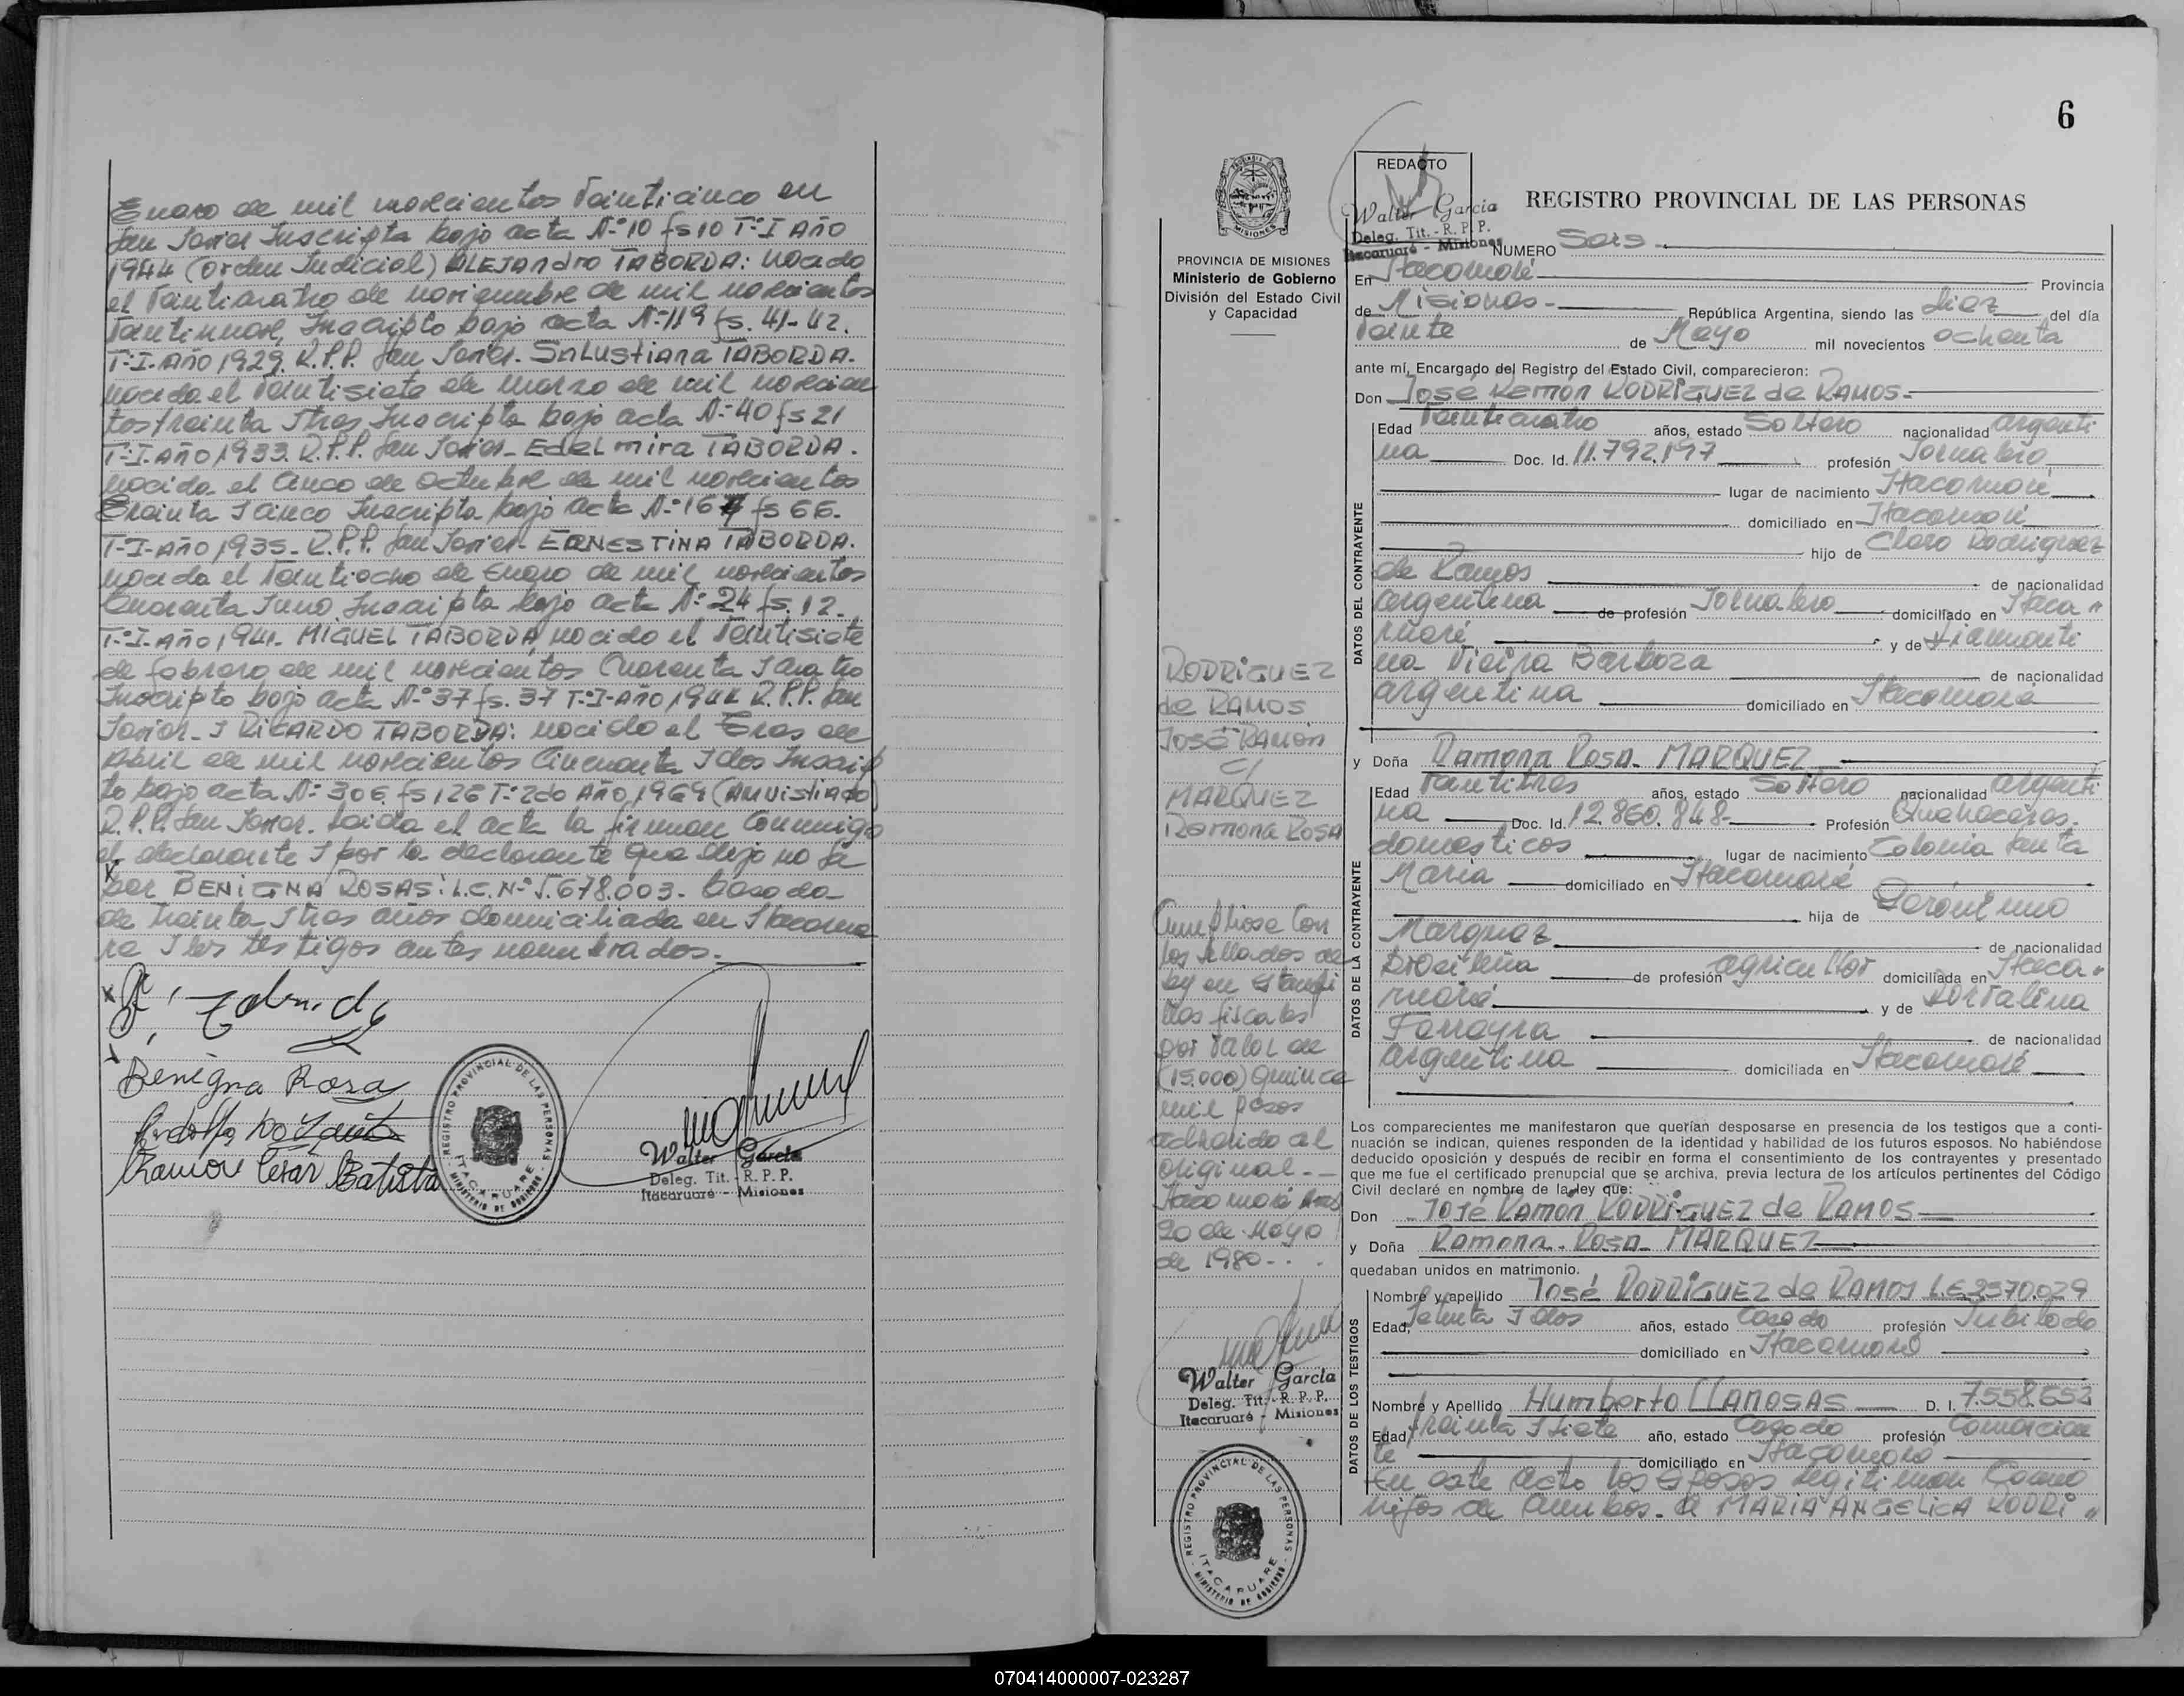 Enero de mil novecientos Veinticinco en
San Javier Inscripta bajo acta N°10 fs 10 T°I Año
1944 (orden Judicial) ALEJANDRO TABORDA: nacido
el Veinticuatro de noviembre de mil novecientos
Veintinueve, Inscripto bajo acta N°119 fs. 41-42.
T°I-Año 1929. R.P.P. San Javier. SALUSTIANA TABORDA.
nacida el Veintisiete de marzo de mil novecien
tos treinta Itres Inscripta bajo acta N°40 fs 21
T°I-Año 1933. R.P.P. San Javier- EDELmira TABORDA.
nacida el Cinco de octubre de mil novecientos
Treinta I cinco Inscripta bajo acta N°167 fs 66.
T-I-Año 1935- R.P.P. San Javier- ERNESTINA TABORDA.
nacida el Veintiocho de Enero de mil novecientos
Cuarenta Iuno Inscripta bajo acta N° 24 fs. 12.
T°I-Año 1941- MIGUEL TABORDA, nacido el Veintisiete
de febrero de mil novecientos Cuarenta I Cuatro
Inscripto bajo acta N° 37 fs. 37 T°I-Año 1944 R.P.P. San
Javier- I RICARDO TABORDA: nacido el Tres de
Abril de mil novecientos Cincuenta I dos Inscrip
to bajo acta N° 306 fs 126 T° 2do Año 1969 (Amnistiado)
R.P.P. San Javier. Leida el acta la firman Conmigo
el declarante I por la declarante que dijo no sa
ber BENIGNA ROSAS: L.C. N° 5.678.003- Casada
de treinta I tres años domiciliada en Itacarua
re I los testigos antes nombrados.-
Benigna Rosa
Ramon Cesar Batista
REGISTRO PROVINCIAL DE LAS PERSONAS
ITACARUARE
MINISTERIO DE GOBIERNO
Walter Garcia
Deleg. Tit. - R. P. P.
Itacaruaré - Misiones
6
PROVINCIA DE MISIONES
Ministerio de Gobierno
División del Estado Civil
y Capacidad
REDACTO
Walter Garcia
Deleg. Tit. - R. P. P.
Itacaruaré - Misiones
REGISTRO PROVINCIAL DE LAS PERSONAS
NUMERO Seis-
En Itacaruaré Provincia
de Misiones- República Argentina, siendo las diez del día
Veinte de Mayo mil novecientos ochenta
ante mí, Encargado del Registro del Estado Civil, comparecieron:
Don José Ramón RODRIGUEZ de RAMOS-
DATOS DEL CONTRAYENTE
Edad Veinticuatro años, estado Soltero nacionalidad argenti
na Doc. Id. 11.792.197 profesión Jornalero
lugar de nacimiento Itacaruaré
domiciliado en Itacaruaré
hijo de Claro Rodriguez
de Ramos de nacionalidad
argentina de profesión Jornalero domiciliado en Itaca"
ruaré y de Diamanti
na Vieira Barboza de nacionalidad
argentina domiciliado en Itacaruaré
y Doña Ramona Rosa- MARQUEZ
DATOS DE LA CONTRAYENTE
Edad Veintitres años, estado Soltero nacionalidad argenti
na Doc. Id. 12.860.848- Profesión Quehaceres.
domesticos lugar de nacimiento Colonia Santa
Maria domiciliado en Itacaruaré
hija de Gerónimo
Marquez de nacionalidad
brasileña de profesión agricultor domiciliada en Itaca"
ruaré y de Dorvalina
Ferreyra de nacionalidad
argentina domiciliada en Itacaruaré
Los comparecientes me manifestaron que querían desposarse en presencia de los testigos que a conti-
nuación se indican, quienes responden de la identidad y habilidad de los futuros esposos. No habiéndose
deducido oposición y después de recibir en forma el consentimiento de los contrayentes y presentado
que me fue el certificado prenupcial que se archiva, previa lectura de los artículos pertinentes del Código
Civil declaré en nombre de la ley que:
Don -José Ramón RODRIGUEZ de RAMOS
y Doña Ramona. Rosa- MARQUEZ
quedaban unidos en matrimonio.
DATOS DE LOS TESTIGOS
Nombre y apellido José RODRIGUEZ de RAMOS L.E 3570.029
Edad, Setenta I dos años, estado Casado profesión Jubilado
domiciliado en Itacaruaré
Nombre y Apellido Humberto LLANOSAS D. I. 7.558.653
Edad, treinta I siete año, estado Casado profesión Comercian
te domiciliado en Itacaruaré
En este acto los Esposos legitiman Como
hijos de Ambos- a MARIA ANGELICA RODRI"
RODRIGUEZ
de RAMOS
JOSÉ RAMÓN
C/
MARQUEZ
Ramona ROSA
Cumpliose Con
los sellados de
ley en Estampi
llas fiscales
por Valor de
(15.000) Quince
mil pesos
adherido al
original.-
Itacaruaré
20 de Mayo
de 1980-..
Walter Garcia
Deleg. Tit. - R. P. P.
Itacaruaré - Misiones
REGISTRO PROVINCIAL DE LAS PERSONAS
ITACARUARE
MINISTERIO DE GOBIERNO
070414000007-023287